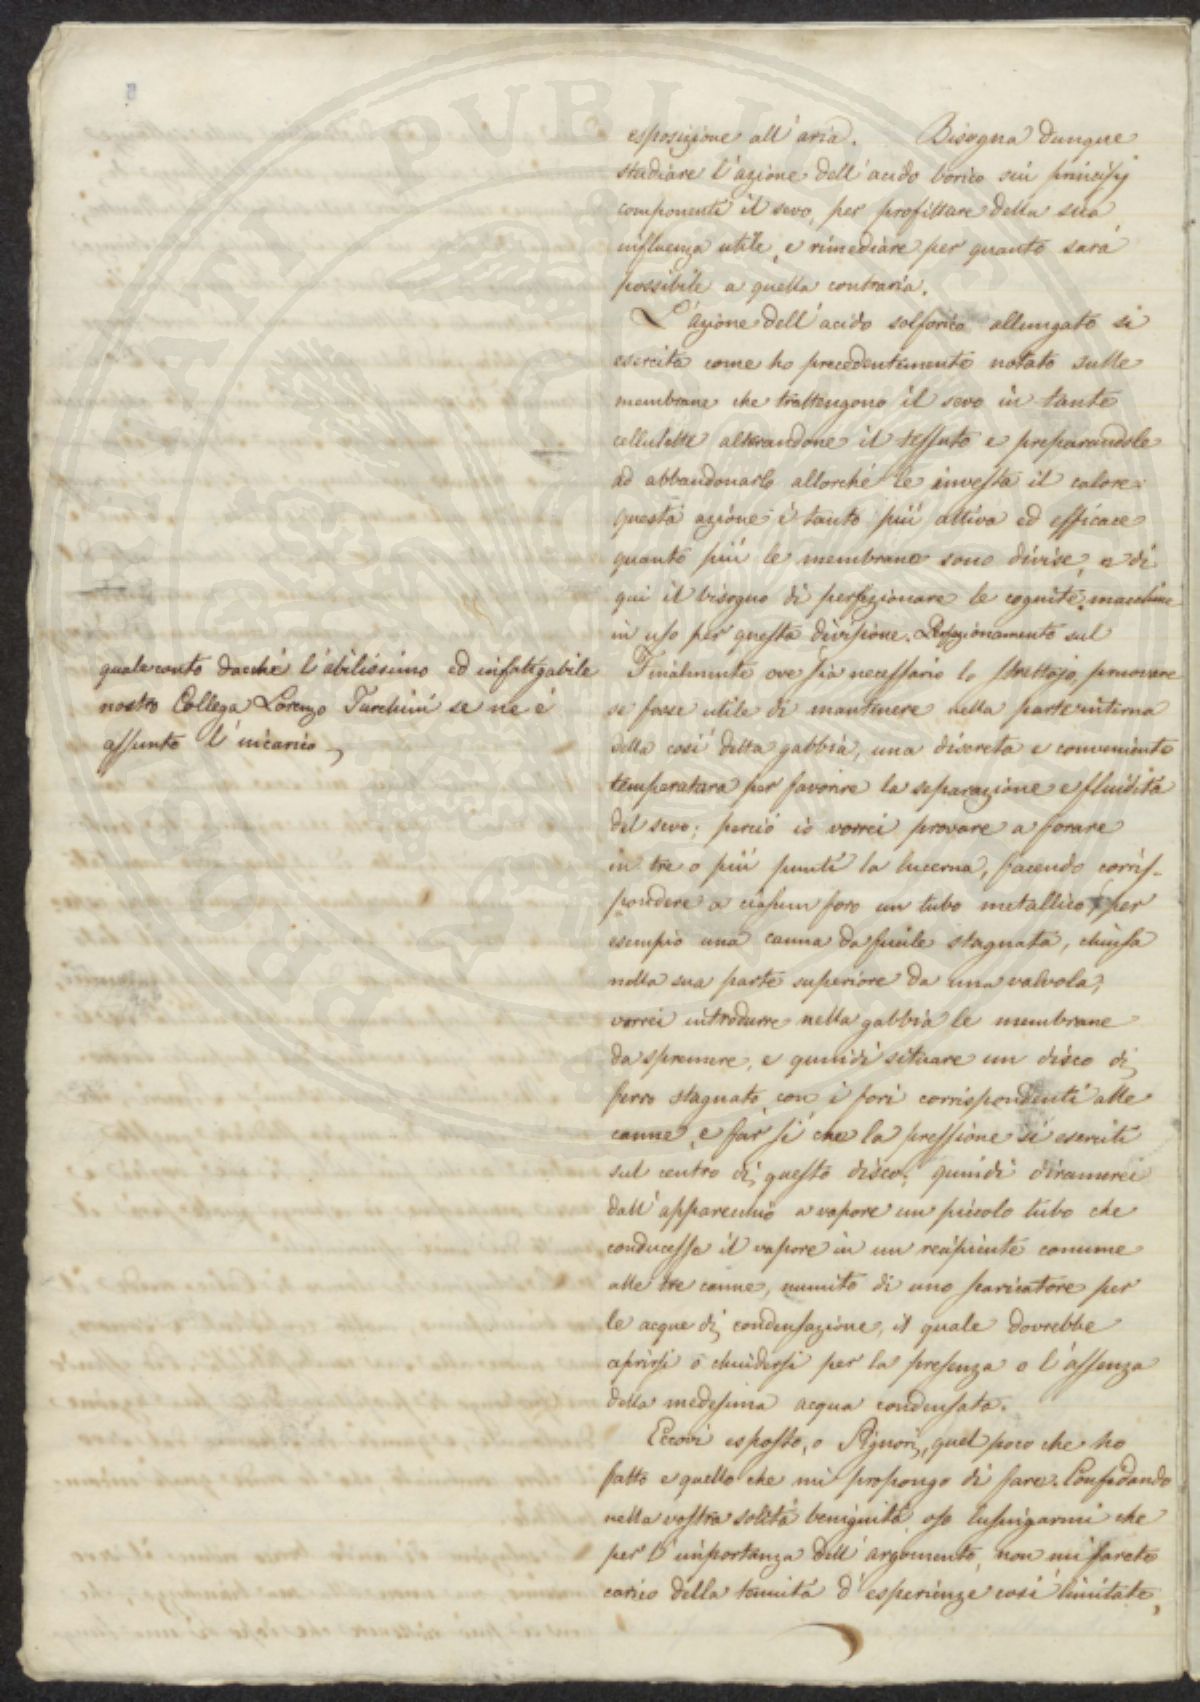 esposizione all'aria. Bisogna dunque
studiare l'azione dell'acido borico sui principj
componenti il sevo, per profittare della sua
influenza utile, e rimediare per quanto sarà
possibile a quella contraria.
L'azione dell'acido solforico allungato si
esercita come ho precedentemente notato sulle
membrane che trattengono il sevo in tante
cellulette alterandone il tessuto e preparandole
ad abbandonarlo allorché le investa il calore:
questa azione è tanto più attiva ed efficace
quanto più le membrane sono divise, e di
qui il bisogno di perfezionare le cognite macchine
in uso per questa divisione. Perfezionamento sul
quale conto dacché l'abilissimo ed infatigabile
nostro Collega Lorenzo Turchini se ne è
assunto l'incarico
Finalmente ove sia necessario lo strettojo, provare
se fosse utile di mantenere nella parte interna
della così detta gabbia, una discreta e conveniente
temperatura per favorire la separazione e fluidità
del sevo; perciò io vorrei provare a forare
in tre o più punti la lucerna, facendo corris-
pondere a ciascun foro un tubo metallico, per
esempio una canna da fucile stagnata, chiusa
nella sua parte superiore da una valvola;
vorrei introdurre nella gabbia le membrane
da spremere, e quindi situare un disco di
ferro stagnato con i fori corrispondenti alle
canne, e far sì che la pressione si eserciti
sul centro di questo disco; quindi diramerei
dall'apparecchio a vapore un piccolo tubo che
conducesse il vapore in un recipiente comune
alle tre canne, munito di uno scaricatore per
le acque di condensazione, il quale dovrebbe
aprirsi o chiudersi per la presenza o l'assenza
della medesima acqua condensata.
Eccovi esposto, o Signori, quel poco che ho
fatto e quello che mi propongo di fare. Confidando
nella vostra solita benignità, oso lusingarmi che
per l'importanza dell'argomento, non mi farete
carico della tenuità d'esperienze così limitate,
PUBLIC